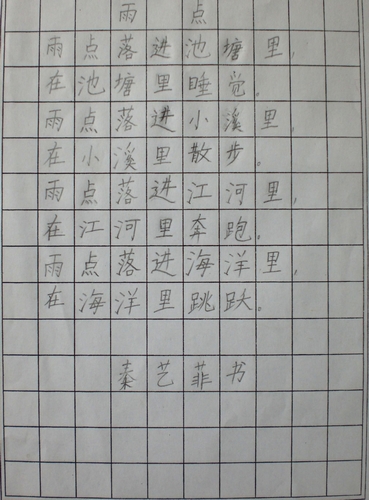 雨 点
雨点落进池塘里，
在池塘里睡觉。
雨点落进小溪里，
在小溪里散步。
雨点落进江河里，
在江河里奔跑。
雨点落进海洋里，
在海洋里跳跃。
秦艺菲书